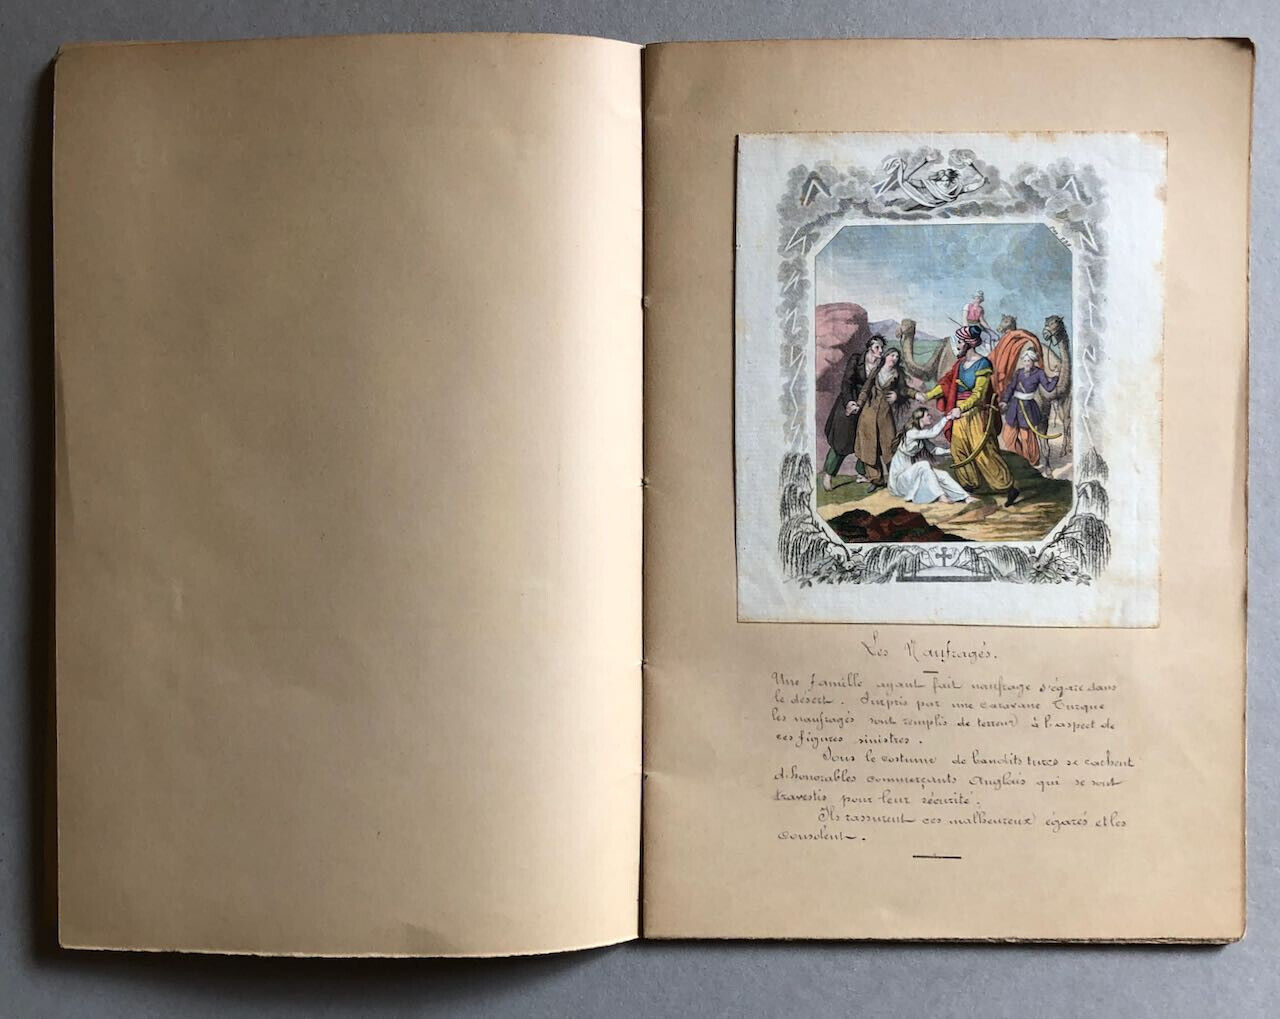 Les Naufragés.
Une famille ayant fait naufrage s'égare dans
le désert. Surpris par une caravane Turque
les naufragés sont remplis de terreur à l'aspect de
ces figures sinistres.
Sous le costume de bandits turcs se cachent
d'honorables commerçants Anglais qui se sont
travestis pour leur sécurité.
Ils rassurent ces malheureux égarés et les
consolent.